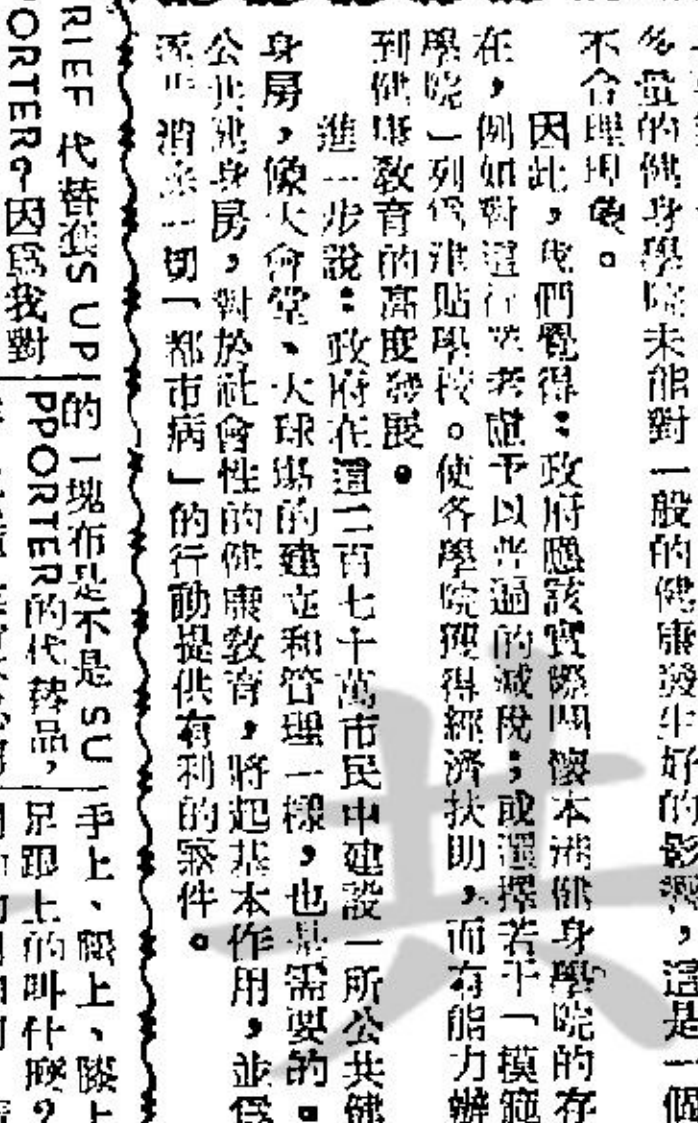 多量的健身學院未能對一般的健康發生好的影響，這是一個
不合理現象。
因此，我們覺得：政府應該實際關懷本港健身學院的存
在，例如對這行業考慮予以普遍的減稅；或選擇若干「模範
學院」列爲津貼學校。使各學院獲得經濟扶助，而有能力辦
到健康教育的高度發展。
進一步說：政府在這二百七十萬市民中建設一所公共健
身房，像大會堂、大球場的建立和管理一樣，也是需要的。
公共健身房，對於社會性的健康教育，將起基本作用，並爲
逐步消除一切「都市病」的行動提供有利的條件。
RIEF 代替 S UP
PORTER？因爲我對
的一塊布是不是 SU
PPORTER的代替品，
手上、腿上、膝上
足跟上的叫什麼？
共